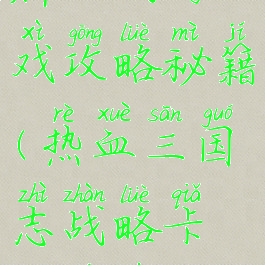 xì gōng lüè mì jí
戏攻略秘籍
rè xuè sān guó
(热血三国
zhì zhàn lüè qiǎ
志战略卡